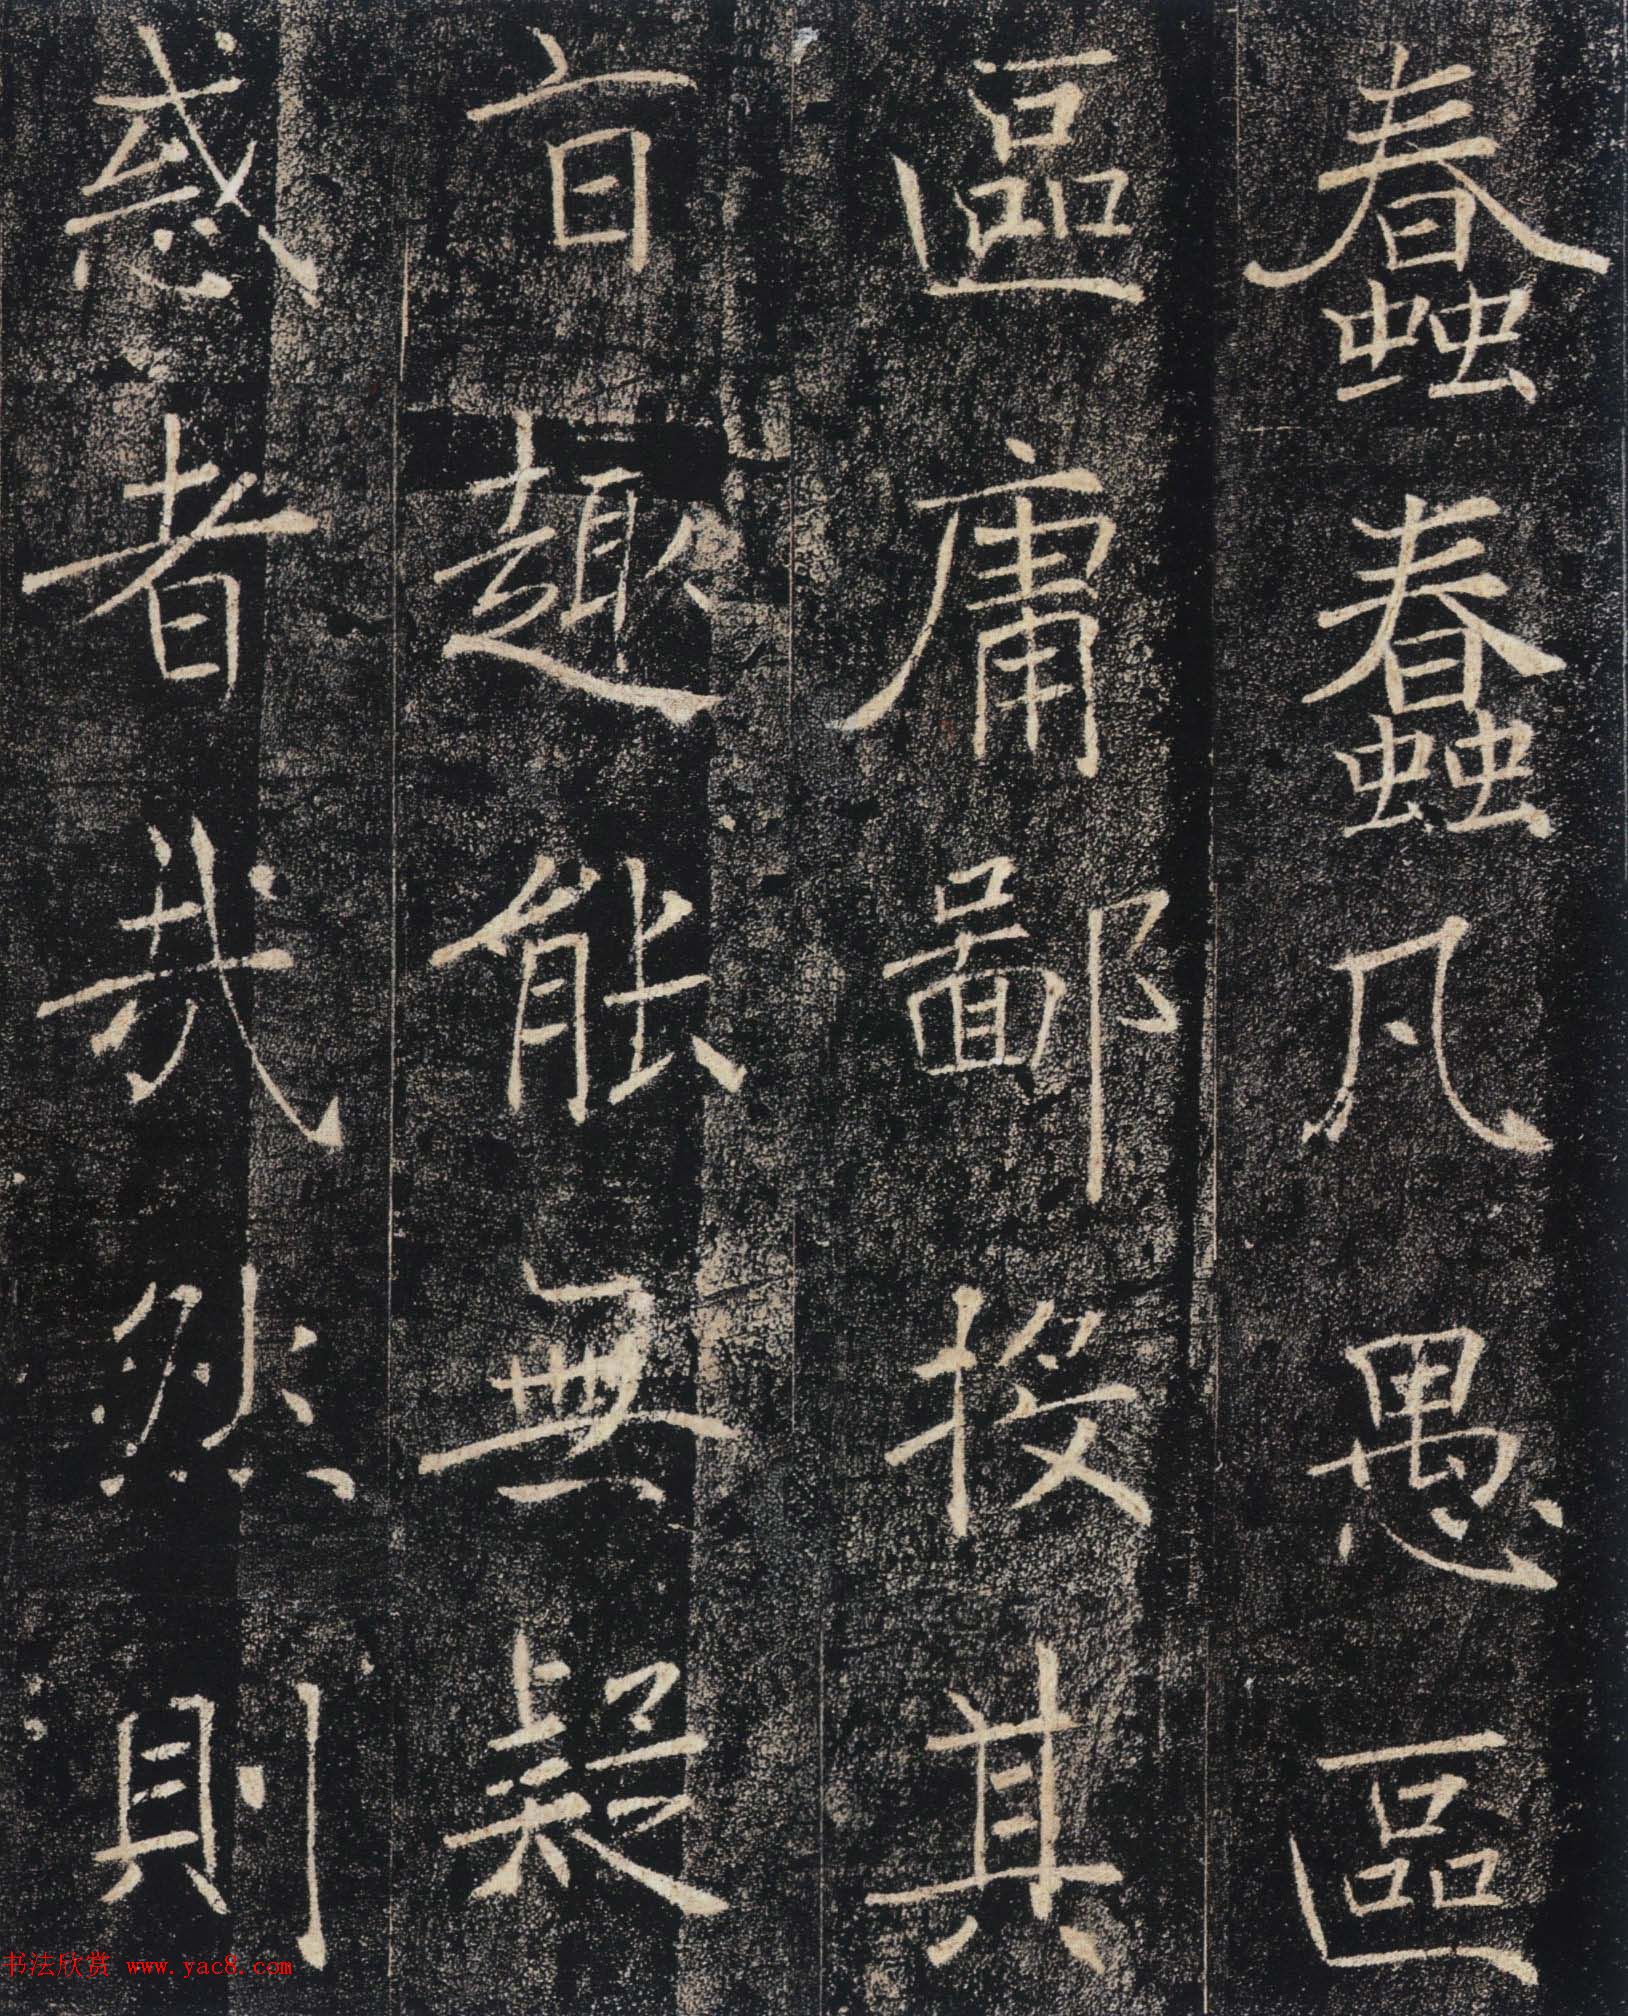 蠢蠢凡愚區
區庸鄙投其
旨趣能無疑
惑者哉然則
书法欣赏 www.yac8.com